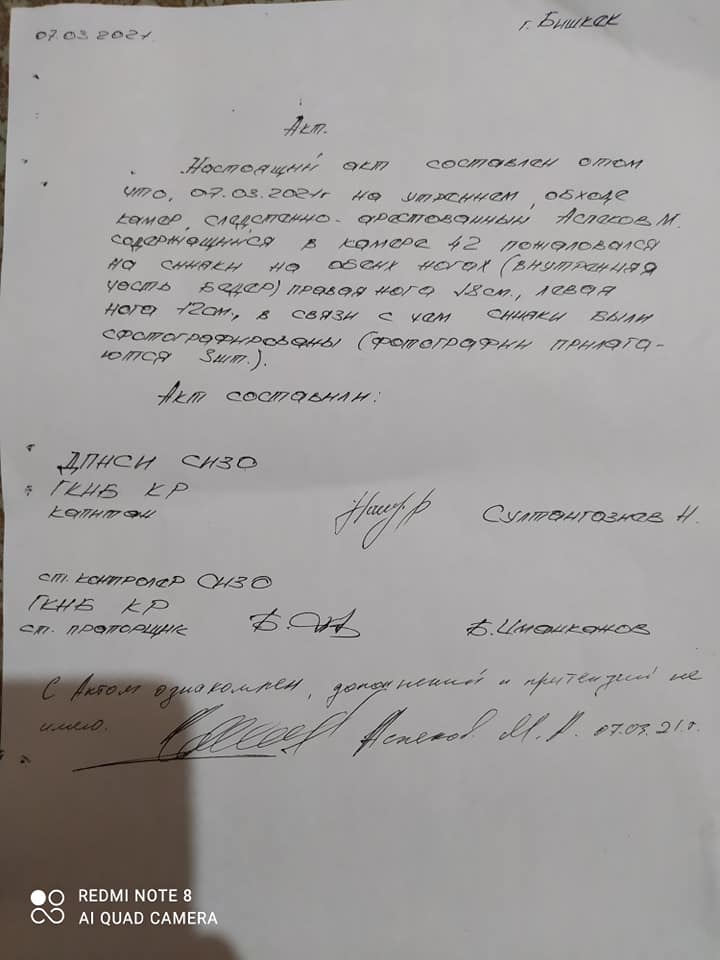 07.03.2021
г. Бишкек
Акт.
Настоящий акт составлен отом
что, 07.03.2021г на утреннем, обходе
камер, следственно-арестованный Аспеков М.
содержащийся в камере 42 пожаловался
на синяки на обеих ногах (внутренняя
часть бедер) правая нога 18см., левая
нога 12см., в связи с чем синяки были
сфотографированы (фотографии прилага-
ются 3шт.).
Акт составили:
ДПНСИ СИЗО
ГКНБ КР
капитан Султангазиев Н.
ст. контролер СИЗО
ГКНБ КР
ст. прапорщик Б. Иманканов
С Актом ознакомлен, дополнений и притензий не
имею. Аспеков М. А. 07.03.21г.
REDMI NOTE 8
AI QUAD CAMERA